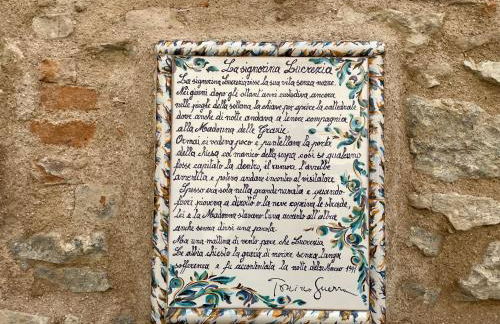 La signorina Lucrezia
La signorina Lucrezia visse la sua vita senza mare.
Nei giorni dopo gli ottant'anni custodiva ancora
nelle pieghe della sottana la chiave per aprire la cattedrale
dove anche di notte andava a tenere compagnia
alla Madonna delle Grazie.
Ormai ci vedeva poco e puntellava la porta
della chiesa col manico della scopa così se qualcuno
fosse capitato là dentro, il rumore l'avrebbe
avvertita e poteva andare incontro al visitatore.
Spesso era sola nella grande navata e quando
fuori pioveva a dirotto o la neve copriva le strade,
lei e la Madonna stavano l'una accanto all'altra
anche senza dirsi una parola.
Ma una mattina di vento pare che Lucrezia
Le abbia chiesto la grazia di morire senza lunga
sofferenza e fu accontentata la notte del marzo 1941
Tonino Guerra